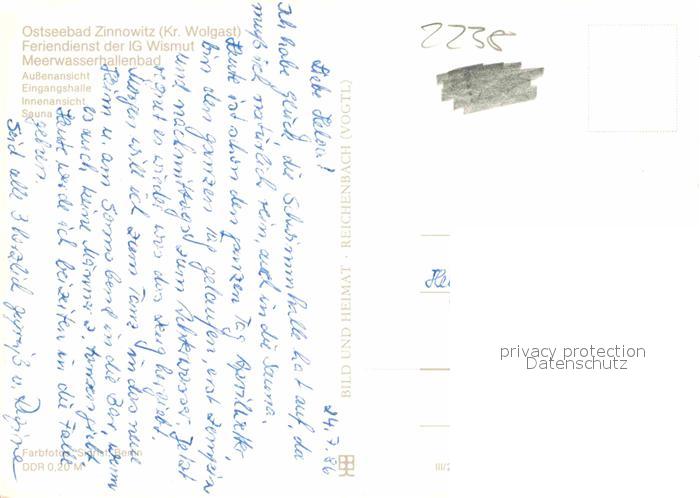 Ostseebad Zinnowitz (Kr. Wolgast)
Feriendienst der IG Wismut
Meerwasserhallenbad
Außenansicht
Eingangshalle
Innenansicht
Sauna
24.7.86
Liebe
Ich habe Glück, die Schwimmhalle hat auf, da
muß ich natürlich rein, auch in die Sauna.
Heute ist schon den ganzen Tag Aprilwetter,
bin den ganzen Tag gelaufen, erst
und nachmittags zum jetzt
regnet es wieder was das Zeug hergibt.
Morgen will ich zum Tanz in das neue
Heim u. am Sonnabend in die Bar, wenn
es auch keine Männer z. tanzen gibt.
Heute werde ich beizeiten in die Falle
gehen.
Seid alle 3 herzlich gegrüßt v.
BILD UND HEIMAT · REICHENBACH (VOGTL)
Farbfotos: Berlin
DDR 0,20 M
2238
privacy protection
Datenschutz